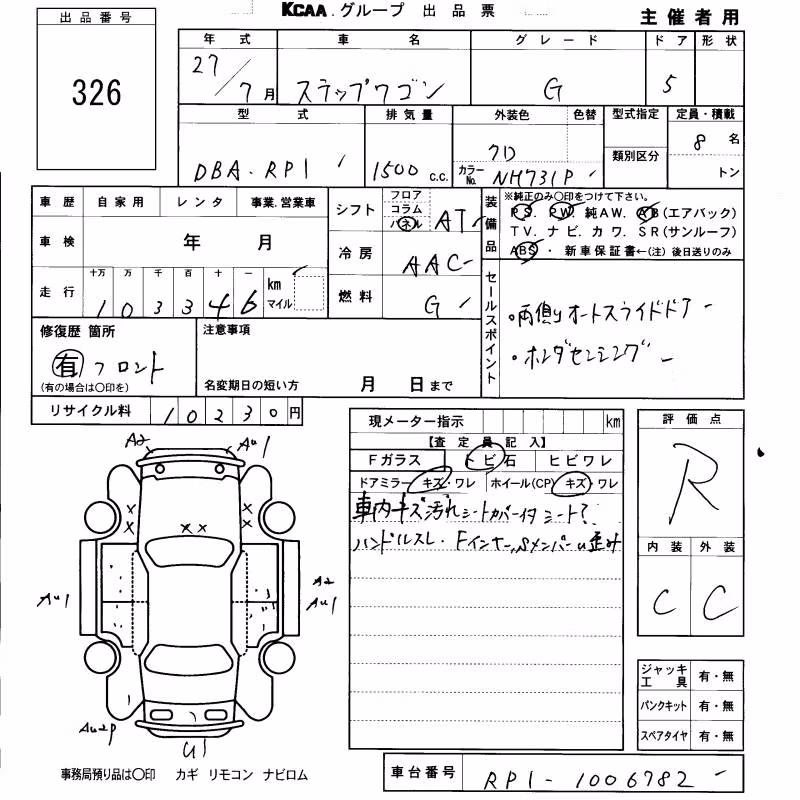 KCAA.グループ 出品票
主催者用
出品番号
326
年式 車名 グレード ドア 形状
27/7月 ステップワゴン G 5
型式 排気量 外装色 色替 型式指定 定員・積載
DBA-RP1 1500 c.c. クロ カラーNo. NH731P 類別区分 8名 トン
車歴 自家用 レンタ 事業.営業車
車検 年 月
走行 十万 万 千 百 十 一 km マイル
103346
シフト フロア コラム パネル AT
冷房 AAC
燃料 G
装備品
※純正のみ○印をつけて下さい。
PS. PW. 純AW. AB(エアバック)
TV. ナビ. カワ. SR(サンルーフ)
ABS・新車保証書←(注)後日送りのみ
セールスポイント
・両側オートスライドドア
・ホンダセンシング
修復歴 箇所
有 フロント
(有の場合は○印を)
注意事項
名変期日の短い方 月 日まで
リサイクル料 10230円
現メーター指示 km
【査定員記入】
Fガラス トビ石 ヒビワレ
ドアミラー キズ・ワレ ホイール(CP) キズ・ワレ
車内キズ汚れシートカバー付シート?
ハンドルスレ. Fインナー,Sメンバー歪み
評価点
R
内装 外装
C C
A2 AU1
XX
XX XX
AU1
A2
AU1
AU2P
U1
ジャッキ工具 有・無
パンクキット 有・無
スペアタイヤ 有・無
事務局預り品は○印 カギ リモコン ナビロム
車台番号 RP1-1006782